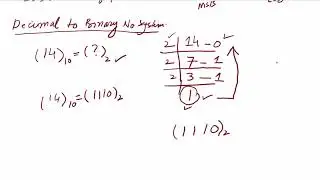 MSB
Decimal to Binary No System
(14)₁₀ = (?)₂ ✓
(14)₁₀ = (1110)₂
2 | 14 – 0
2 | 7 – 1
2 | 3 – 1
1
(1110)₂